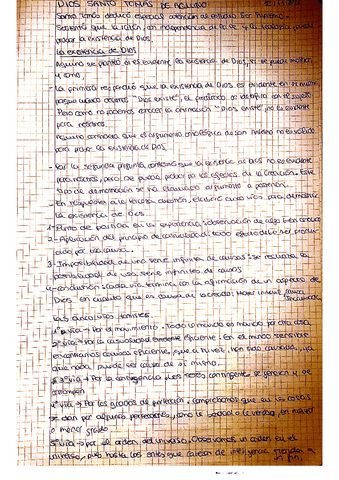 DIOS SANTO TOMÁS DE AQUINO
Santo Tomás dedicó especial atención al estudio Ser Supremo.
Sostenía que la razón, con independencia de la fe y la teología, puede
probar la existencia de Dios.
La existencia de Dios
Aquino se planteó si es evidente la existencia de Dios, si se puede mostrar,
y cómo.
- La primera respondió que la existencia de Dios es evidente en sí misma,
porque cuando decimos "Dios existe", el predicado se identifica con el sujeto.
Pero como no podemos conocer la afirmación "Dios existe" no es evidente
para nosotros.
Aquino consideró que el argumento ontológico de San Anselmo no es válido
para probar la existencia de Dios.
- Por la segunda pregunta, contestó que la existencia de Dios no es evidente
para nosotros, pero se puede probar por los efectos de la Creación. Este
tipo de demostración se ha llamado argumento a posteriori.
- En respuesta a la tercera cuestión, elaboró cinco vías para demostrar
la existencia de Dios
1- Punto de partida en la experiencia: observación de algo bien conocido
2- Aplicación del principio de causalidad: todo efecto debe ser produ-
cido por una causa.
3- Imposibilidad de una serie infinita de causas: Se rechaza la
posibilidad de una serie infinita de causas
4- Conclusión: cada vía termina con la afirmación de un aspecto de
Dios en cuanto que es causa de lo creado: Motor inmóvil, Causa Incausada
Las cinco vías tomistas.
1ª vía → Por el movimiento. Todo lo movido es movido por otra cosa
2ª vía → Por la causalidad eficiente. En el mundo sensible
encontramos causas eficientes, que a su vez, han sido causadas, ya
que nada puede ser causa de sí mismo.
3ª vía → Por la contingencia. Los seres contingentes se generan y se
corrompen
4ª vía → Por los grados de perfección. Comprobamos que en las cosas
se dan por algunas perfecciones, como la bondad o la verdad, en mayor
o menor grado
5ª vía → por el orden del universo. Observamos un orden en el
universo, pues hasta los entes que carecen de inteligencia tienden a
un fin.